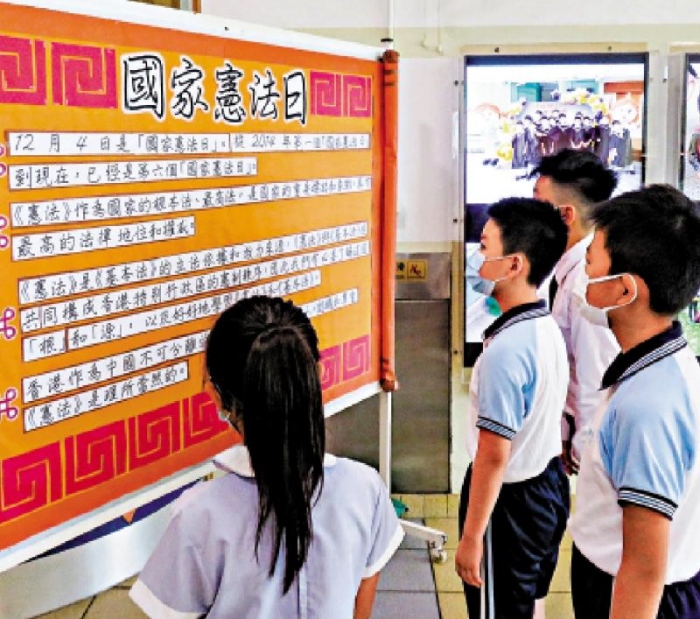 國家憲法日
12 月 4 日是「國家憲法日」。從 2014 年第一個「國家憲法日
到現在，已經是第六個「國家憲法日」。
《憲法》作為國家的根本法、最高法，是國家的
最高的法律地位和權威。
《憲法》是《基本法》的立法依據和權力來源，《憲法》與《基本法》
共同構成香港特別行政區的憲制秩序，因此我們有必要了解這個
「根」和「源」，以及好好地學習
香港作為中國不可分離
《憲法》是理所當然的。